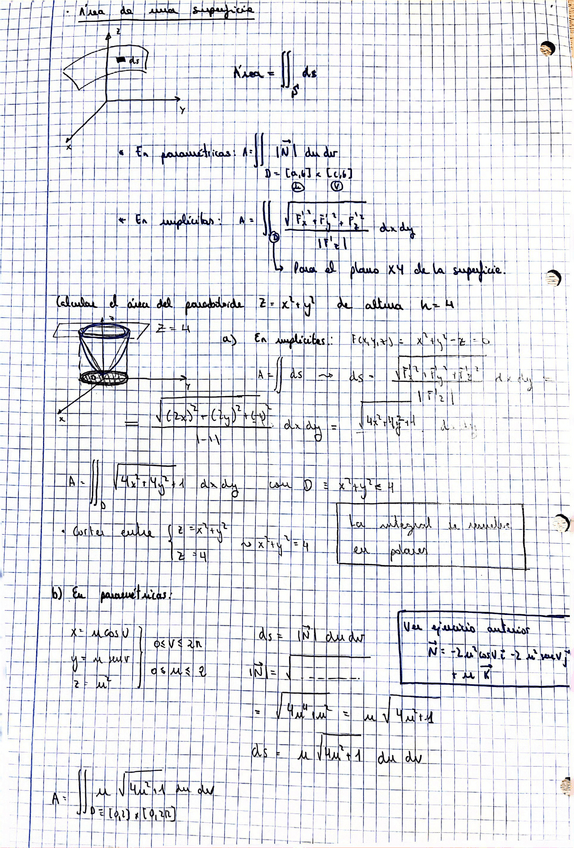 · Área de una superficie
z
ds
y
x
Área = ∬_β ds
* En paramétricas: A = ∬ |N⃗| du dv
D = [a,b] × [c,b]
(u) (v)
* En implícitas: A = ∬_D √(F'x² + F'y² + F'z²) / |F'z| dx dy
↳ Para el plano XY de la superficie.
Calcular el área del paraboloide z = x² + y² de altura h = 4
z
z = 4
y
x
a) En implícitas: F(x,y,z) = x² + y² - z = 0
A = ∬ ds ⇝ ds = √(F'x² + F'y² + F'z²) / |F'z| dx dy =
= √((2x)² + (2y)² + (-1)²) / |-1| dx dy = √(4x² + 4y² + 1)
A = ∬_D √(4x² + 4y² + 1) dx dy con D ≡ x² + y² ≤ 4
· Cortes entre { z = x² + y² ⇝ x² + y² = 4
z = 4
La integral se resuelve
en polares
b) En paramétricas:
x = u cos v
y = u sen v
z = u²
0 ≤ v ≤ 2π
0 ≤ u ≤ 2
ds = |N⃗| du dv
|N⃗| = √ - - - - -
= √(4u⁴ + u²) = u √(4u² + 1)
ds = u √(4u² + 1) du dv
Ver ejercicio anterior
N⃗ = -2u² cos v i⃗ - 2u² sen v j⃗
+ u k⃗
A = ∬ u √(4u² + 1) du dv
D = [0,2] × [0,2π]